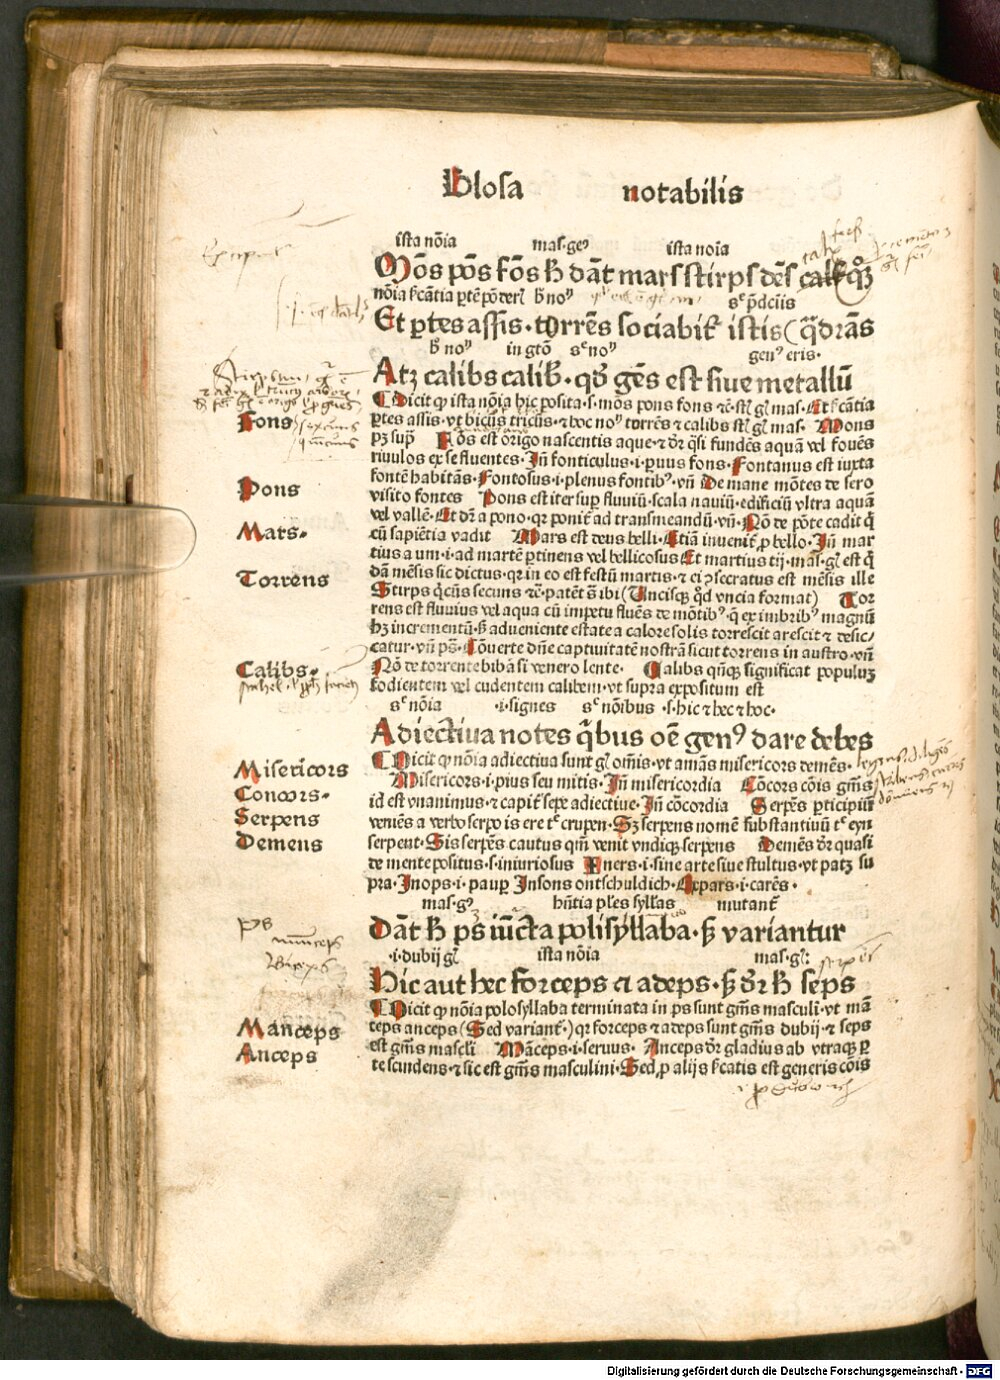 Glosa notabilis
ista nōia mas·geꝰ ista noīa
Mōs pōs fōs ẜ dāt mars stirps dēs calxqꝫ
Et ꝑtes assis·torrēs sociabit istis (q̄drās
ẜ noꝰ in gtō sᵉ noꝰ genꝰ eris·
Atꝫ calibs calib̄·qđ gēs est siue metallū
Dicit ꝙ ista nōia hic posita·s·mōs pons fons ⁊c̄·sūt gl̄ mas·Et
ꝑtes assis·vt bicūs tricūs·⁊ hoc noꝰ torrēs ⁊ calibs sūt gl̄ mas· Mons
Fons
pꝫ supͣ Fōs est origo nascentis aque·⁊ dr̄ q̄si fundēs aquā vel fouēs
riuulos ex se fluentes·Iñ fonticulus·i·ꝑuus fons·Fontanus est iuxta
fontē habitās·Fontosus·i·plenus fontibꝰ·vñ De mane mōtes de sero
Pons
visito fontes Pons est iter suꝑ fluuiū·scala nauiū·edificiū vltra aquā
vel vallē·Et dr̄ a pono·qr ponit̄ ad transmeandū·vñ·Nō de pōte cadit q̄
Mars·
cū sapiētia vadit Mars est deus belli·Etiā inuenit̄ ꝓ bello·Iñ mar
tius a um·i·ad martē ꝑtinens vel bellicosus Et martius tij·mas·gl̄ est q̄
Torrens
dā mēsis sic dictus·qr in eo est festū martis·⁊ ei ↄsecratus est mēsis ille
Stirps q̄cūs secuns ⁊c̄·patēt s̄ ibi (Uncisqꝫ q̄d vncia format) Tor
rens est fluuius vel aqua cū impetu fluēs de mōtibꝰ·q̄ ex imbribꝰ magnū
hꝫ incrementū·ẜ adueniente estate a calore solis torrescit arescit ⁊ desic/
catur·vñ ps̄·Cōuerte dñe captiuitatē nostrā sicut torrens in austro·vñ
Calibs·
Nō de torrente bibā si venero lente· Calibs qñqꝫ significat populuꝫ
fodientem vel cudentem calibem·vt supra expositum est
sᵉ nōia ·i·signes sᵉ nōibus ·s·hic ⁊ hec ⁊ hoc·
Adiectiua notes q̄bus oē genꝰ dare debes
Misericors
Dicit ꝙ nōia adiectiua sunt gl̄ om̄is·vt amās misericors demēs·
Misericors·i·pius seu mitis·Iñ misericordia Cōcors cōis gn̄is
Concors·
id est vnanimus·⁊ capit̄ sepe adiectiue·Iñ cōcordia Serpēs ꝑticipiū
Serpens
veniēs a verbo serpo is ere tᵉ crupen·Sꝫ serpens nomē substantiuū tᵉ eyn
Demens
serpent·Sis serpēs cautus qm̄ venit vndiqꝫ serpens Demēs dr̄ quasi
de mente positus·s·iniuriosus Iners·i·sine arte siue stultus·vt patꝫ su
pra·Inops·i·pauꝑ Insons ontschuldich·Expars·i·carēs·
mas·gꝰ hn̄tia pl̄es syllas mutant̄
Dāt ẜ ps iūcta polisyllaba·ẜ variantur
·i·dubij gl̄ ista nōia mas·gl̄:
Hic aut hec forceps et adeps·ẜ dr̄ ẜ seps
Dicit ꝙ nōia polosyllaba terminata in ps sunt gn̄is masculi·vt mā
Manceps
ceps anceps (Sed variant̄·) qr forceps ⁊ adeps sunt gn̄is dubij·⁊ seps
Anceps
est gn̄is masculi Māceps·i·seruus· Anceps dr̄ gladius ab vtraqꝫ ꝑ
te scindens·⁊ sic est gn̄is masculini·Sed ꝓ alijs est generis cōis
Digitalisierung gefördert durch die Deutsche Forschungsgemeinschaft - DFG